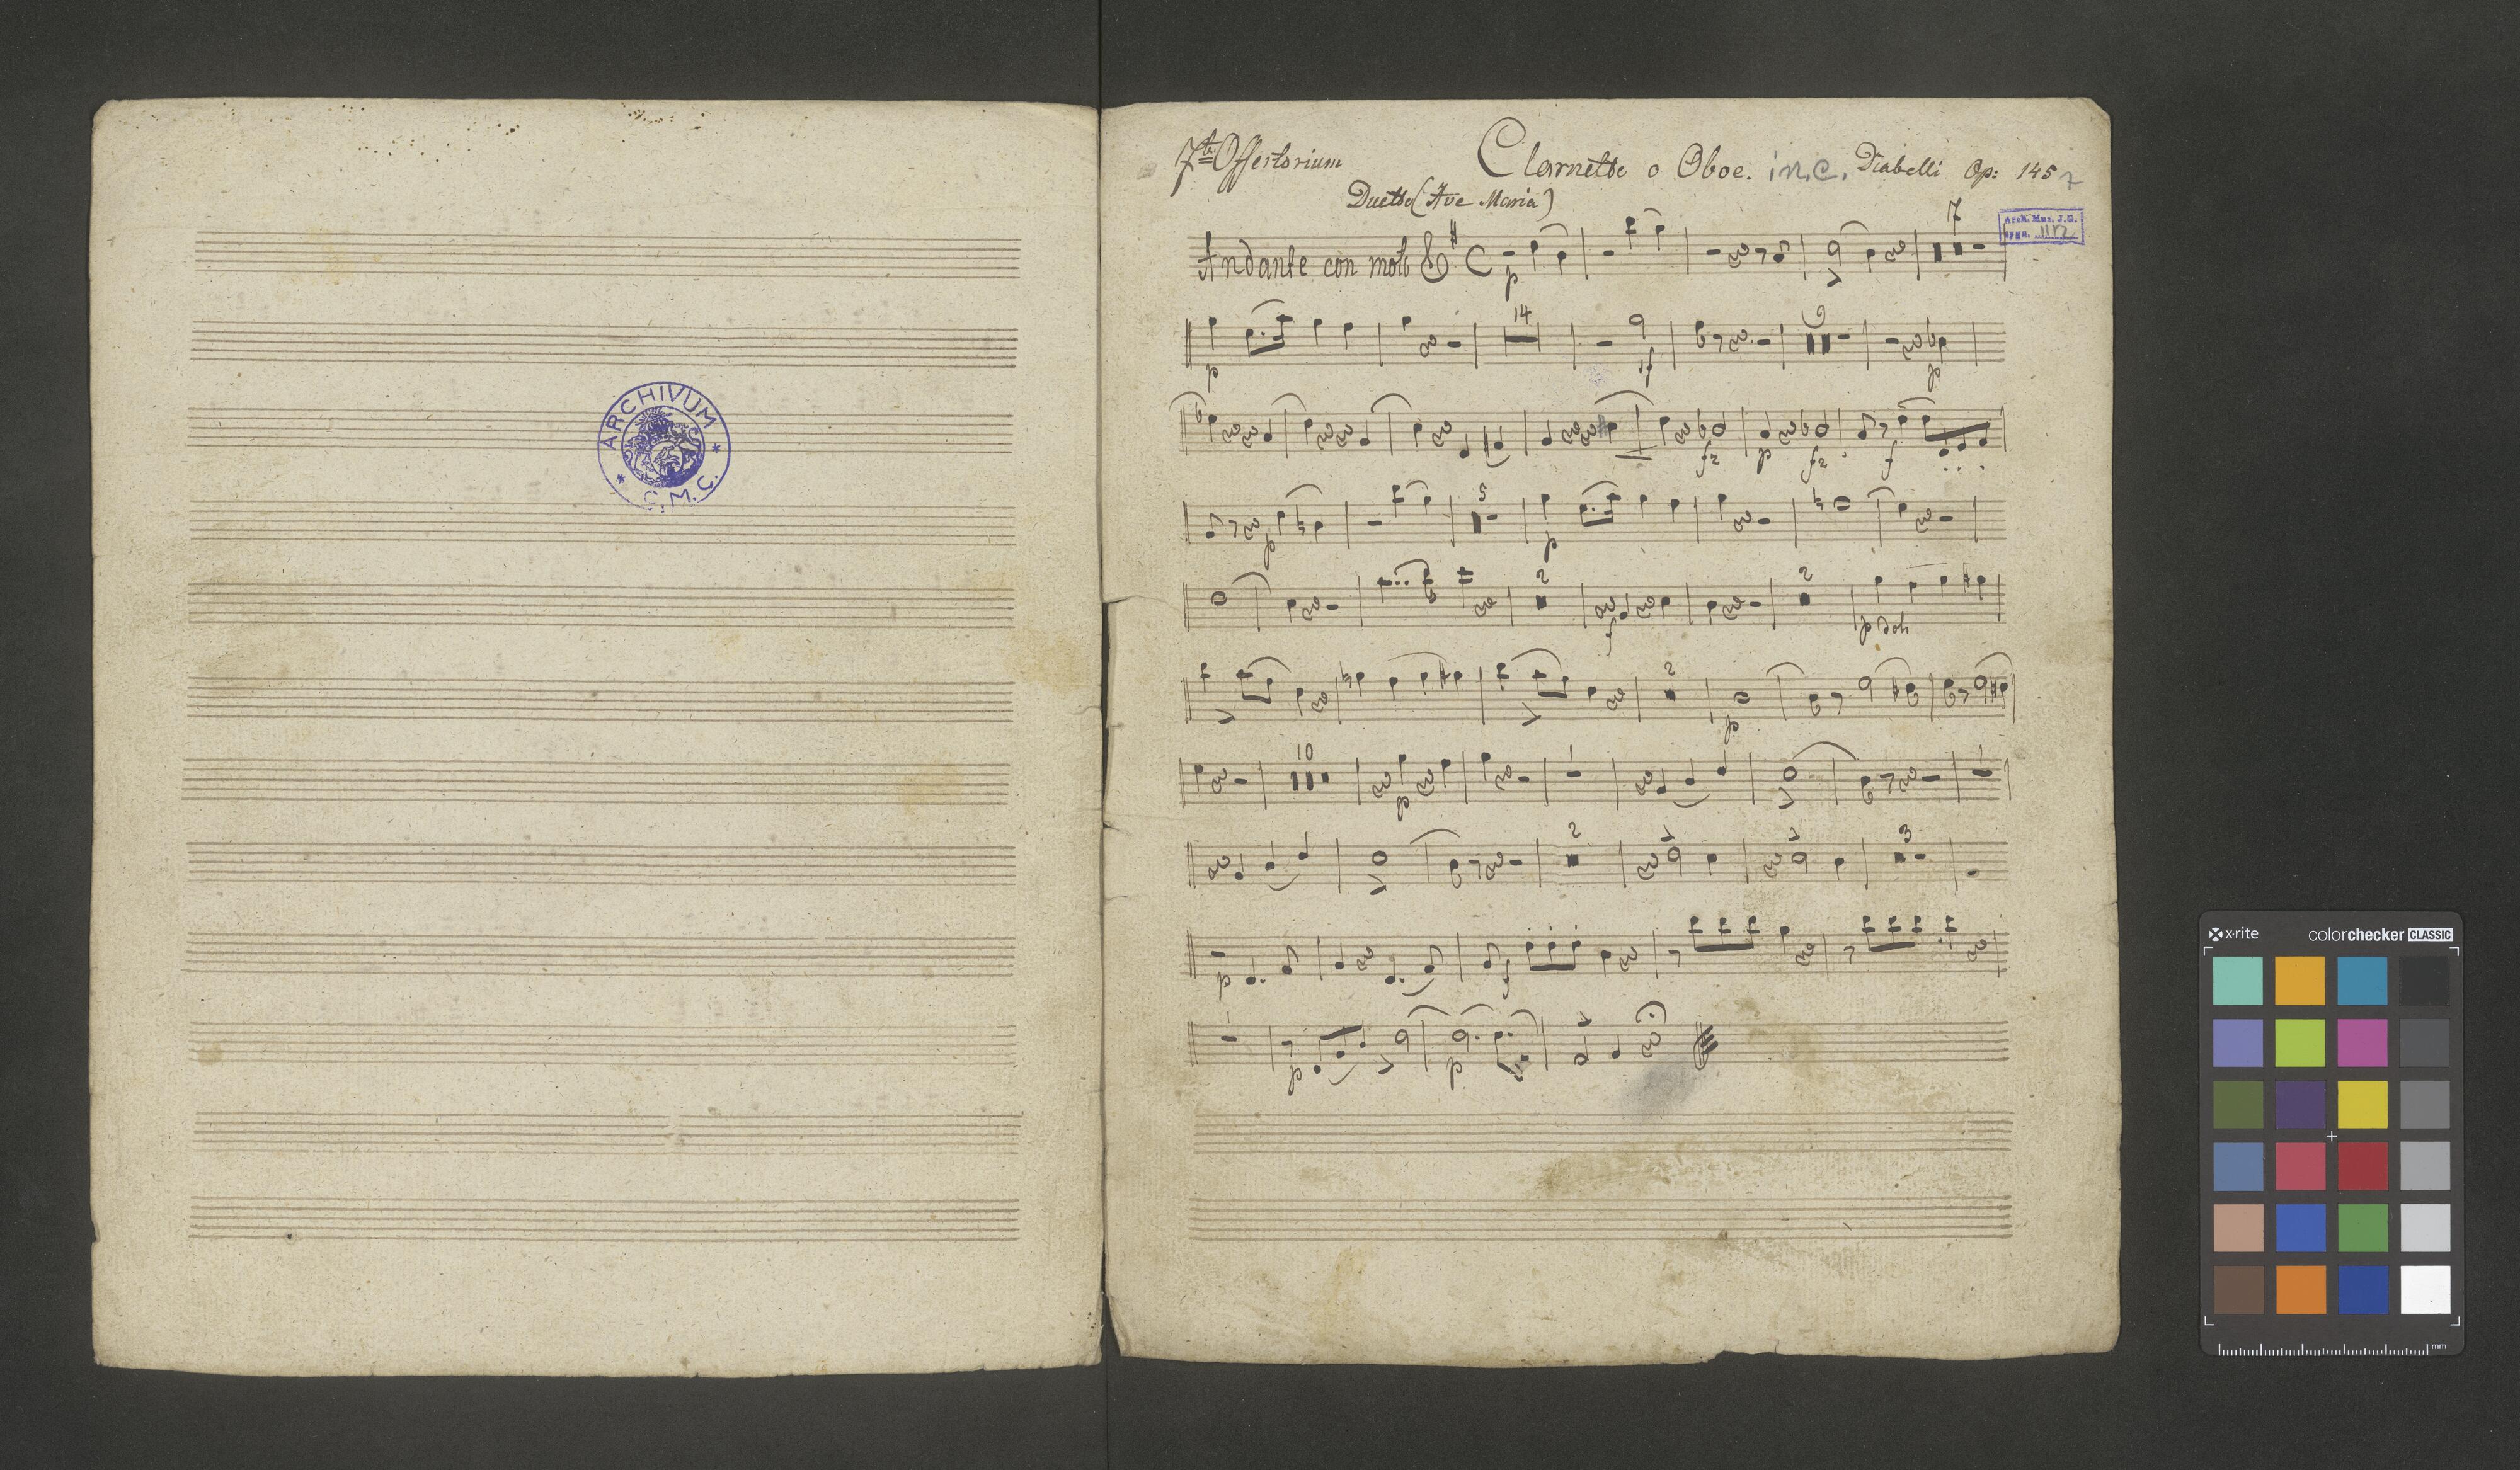 ARCHIVUM
* C. M. C. *
7te Offertorium Clarnette o Oboe. in C. Diabelli Op: 145
Duetto (Ave Maria)
Arch. Mus. J.G.
sygn. 1172
7
Andante con moto
p
14
p sf p
f2 p f2 f
5
p p
2 2
f p dol
2
p
10
p
2 3
p f
p p
x-rite colorchecker CLASSIC
mm